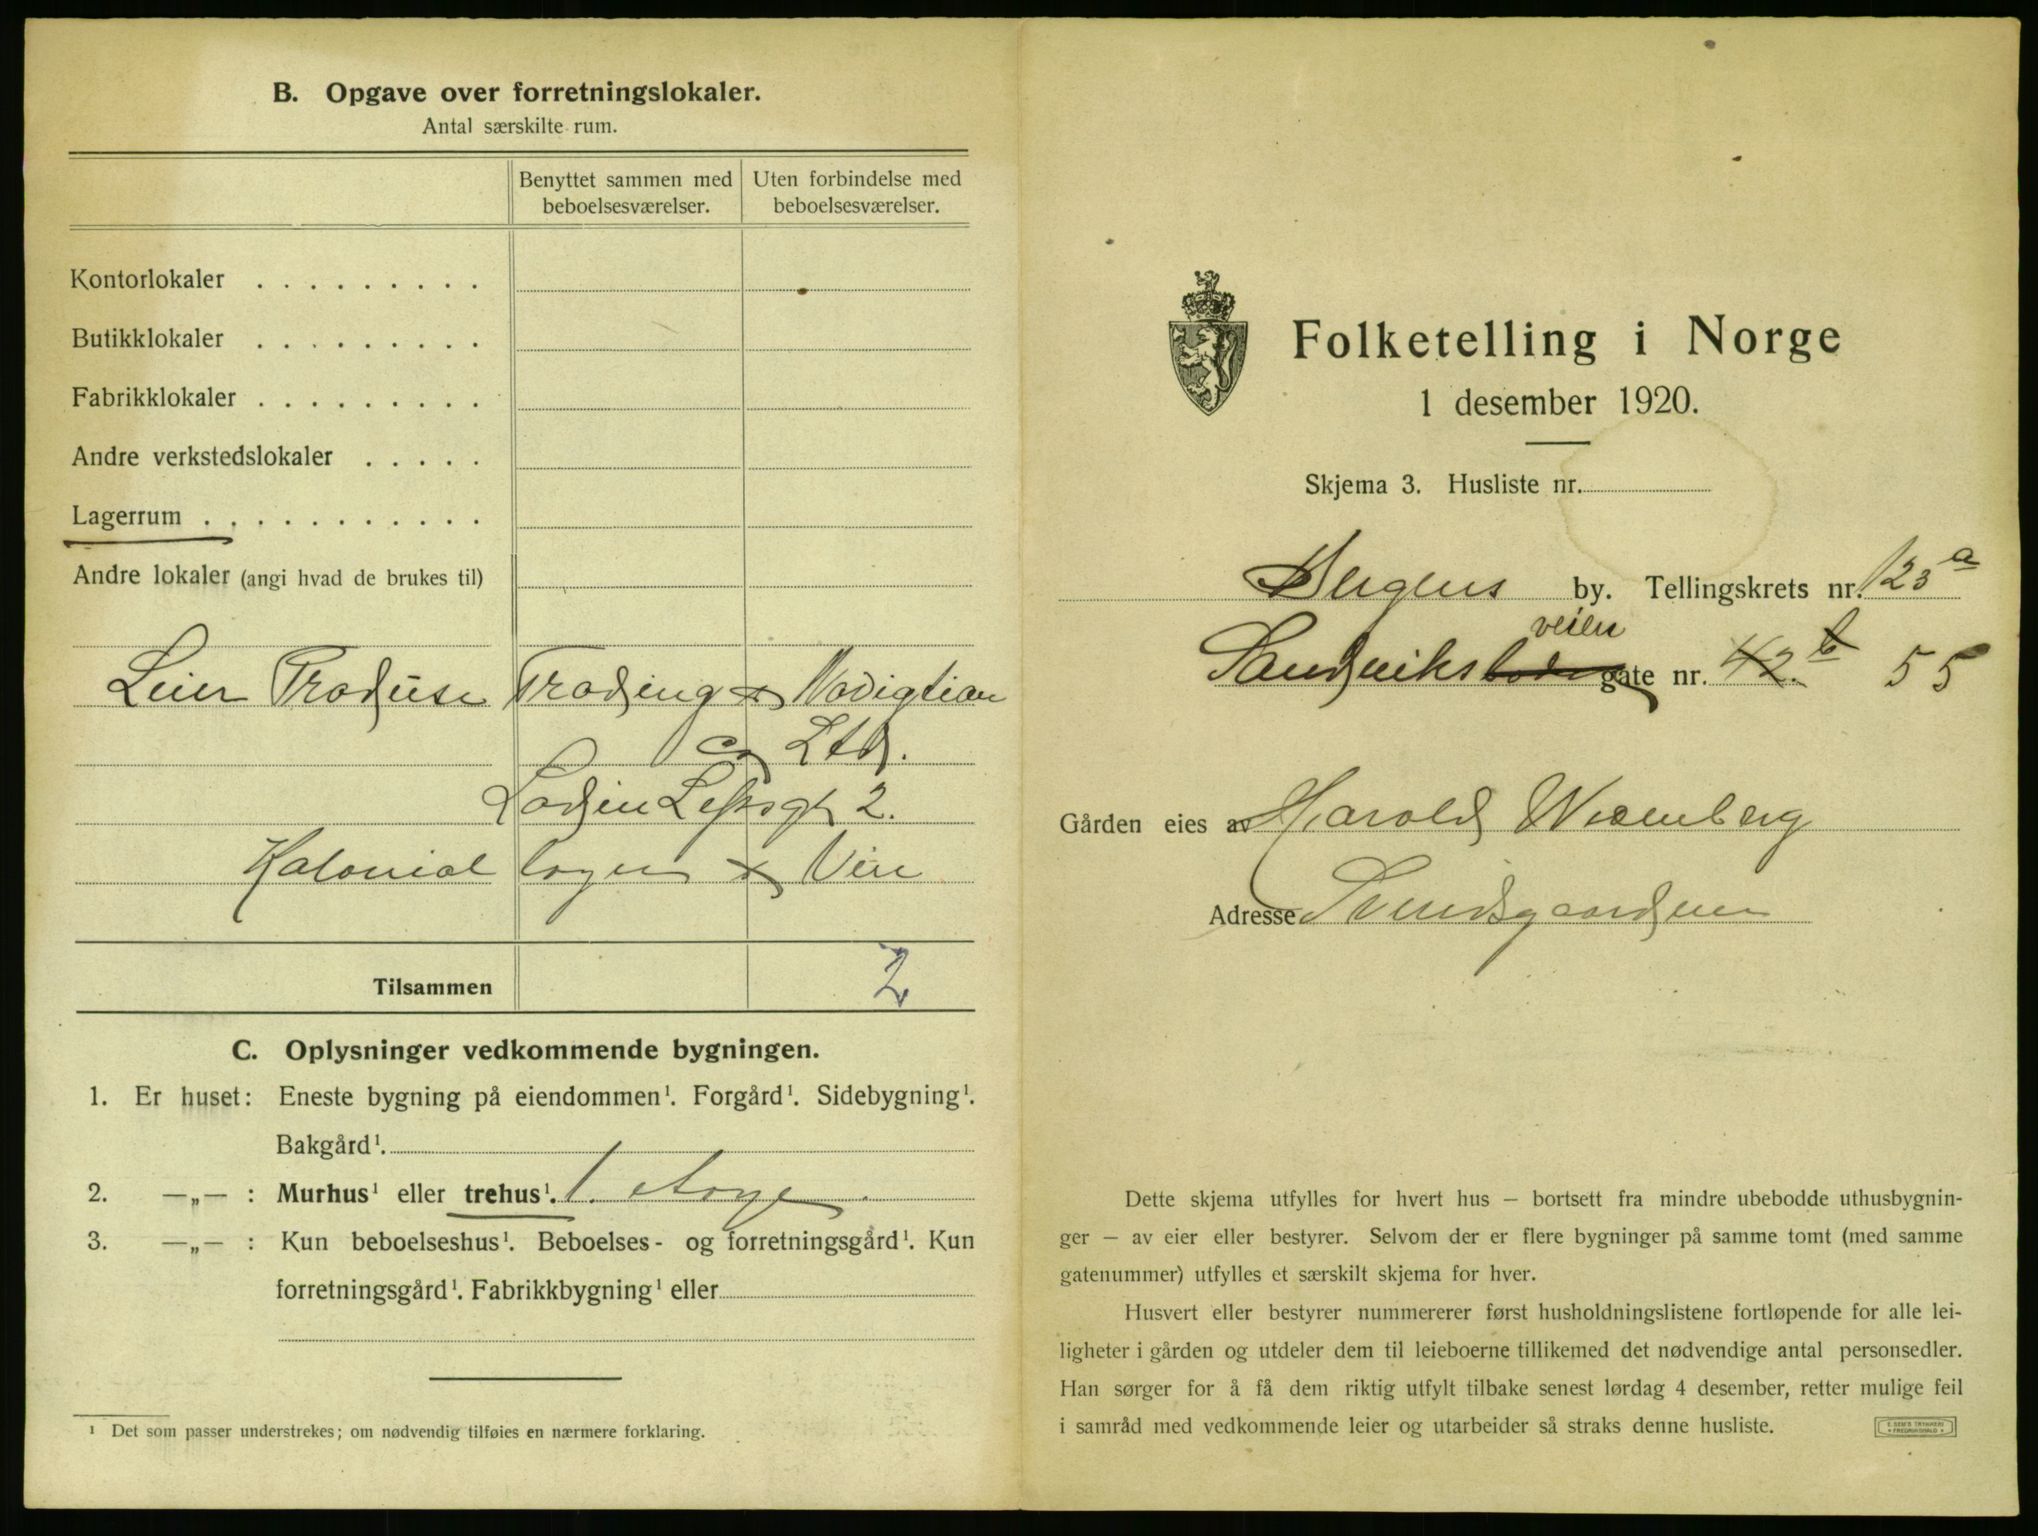 B. Opgave over forretningslokaler.
Antal særskilte rum.
Benyttet sammen med beboelsesværelser.
Uten forbindelse med beboelsesværelser.
Kontorlokaler . . . . . . . . .
Butikklokaler . . . . . . . . .
Fabrikklokaler . . . . . . . . .
Andre verkstedslokaler . . . . .
Lagerrum . . . . . . . . . . .
Andre lokaler (angi hvad de brukes til)
Leier Produse Trading & Navigtian
Co Ltd.
Ladjen 2.
Kolonial lager & Vin
Tilsammen 2
C. Oplysninger vedkommende bygningen.
1. Er huset: Eneste bygning på eiendommen¹. Forgård¹. Sidebygning¹.
Bakgård¹.
2. —„— : Murhus¹ eller trehus¹. 1. etage
3. —„— : Kun beboelseshus¹. Beboelses- og forretningsgård¹. Kun
forretningsgård¹. Fabrikkbygning¹ eller
¹ Det som passer understrekes; om nødvendig tilføies en nærmere forklaring.
Folketelling i Norge
1 desember 1920.
Skjema 3. Husliste nr.
Bergens by. Tellingskrets nr. 123 a
veien
Sandviksbodegate nr. 42. b 55
Gården eies av Harold Wesenberg
Adresse
Dette skjema utfylles for hvert hus – bortsett fra mindre ubebodde uthusbygnin-
ger – av eier eller bestyrer. Selvom der er flere bygninger på samme tomt (med samme
gatenummer) utfylles et særskilt skjema for hver.
Husvert eller bestyrer nummererer først husholdningslistene fortløpende for alle lei-
ligheter i gården og utdeler dem til leieboerne tillikemed det nødvendige antal personsedler.
Han sørger for å få dem riktig utfylt tilbake senest lørdag 4 desember, retter mulige feil
i samråd med vedkommende leier og utarbeider så straks denne husliste.
E. SEM'S TRYKKERI
• FREDRIKSHALD •